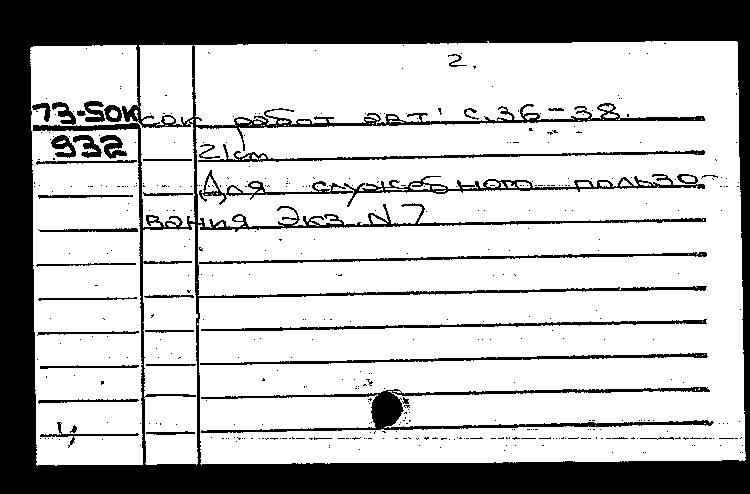 2.
73-5ок сок работ авт: с.36-38.
932 21см
Для служебного пользо-
вания Экз. N 7